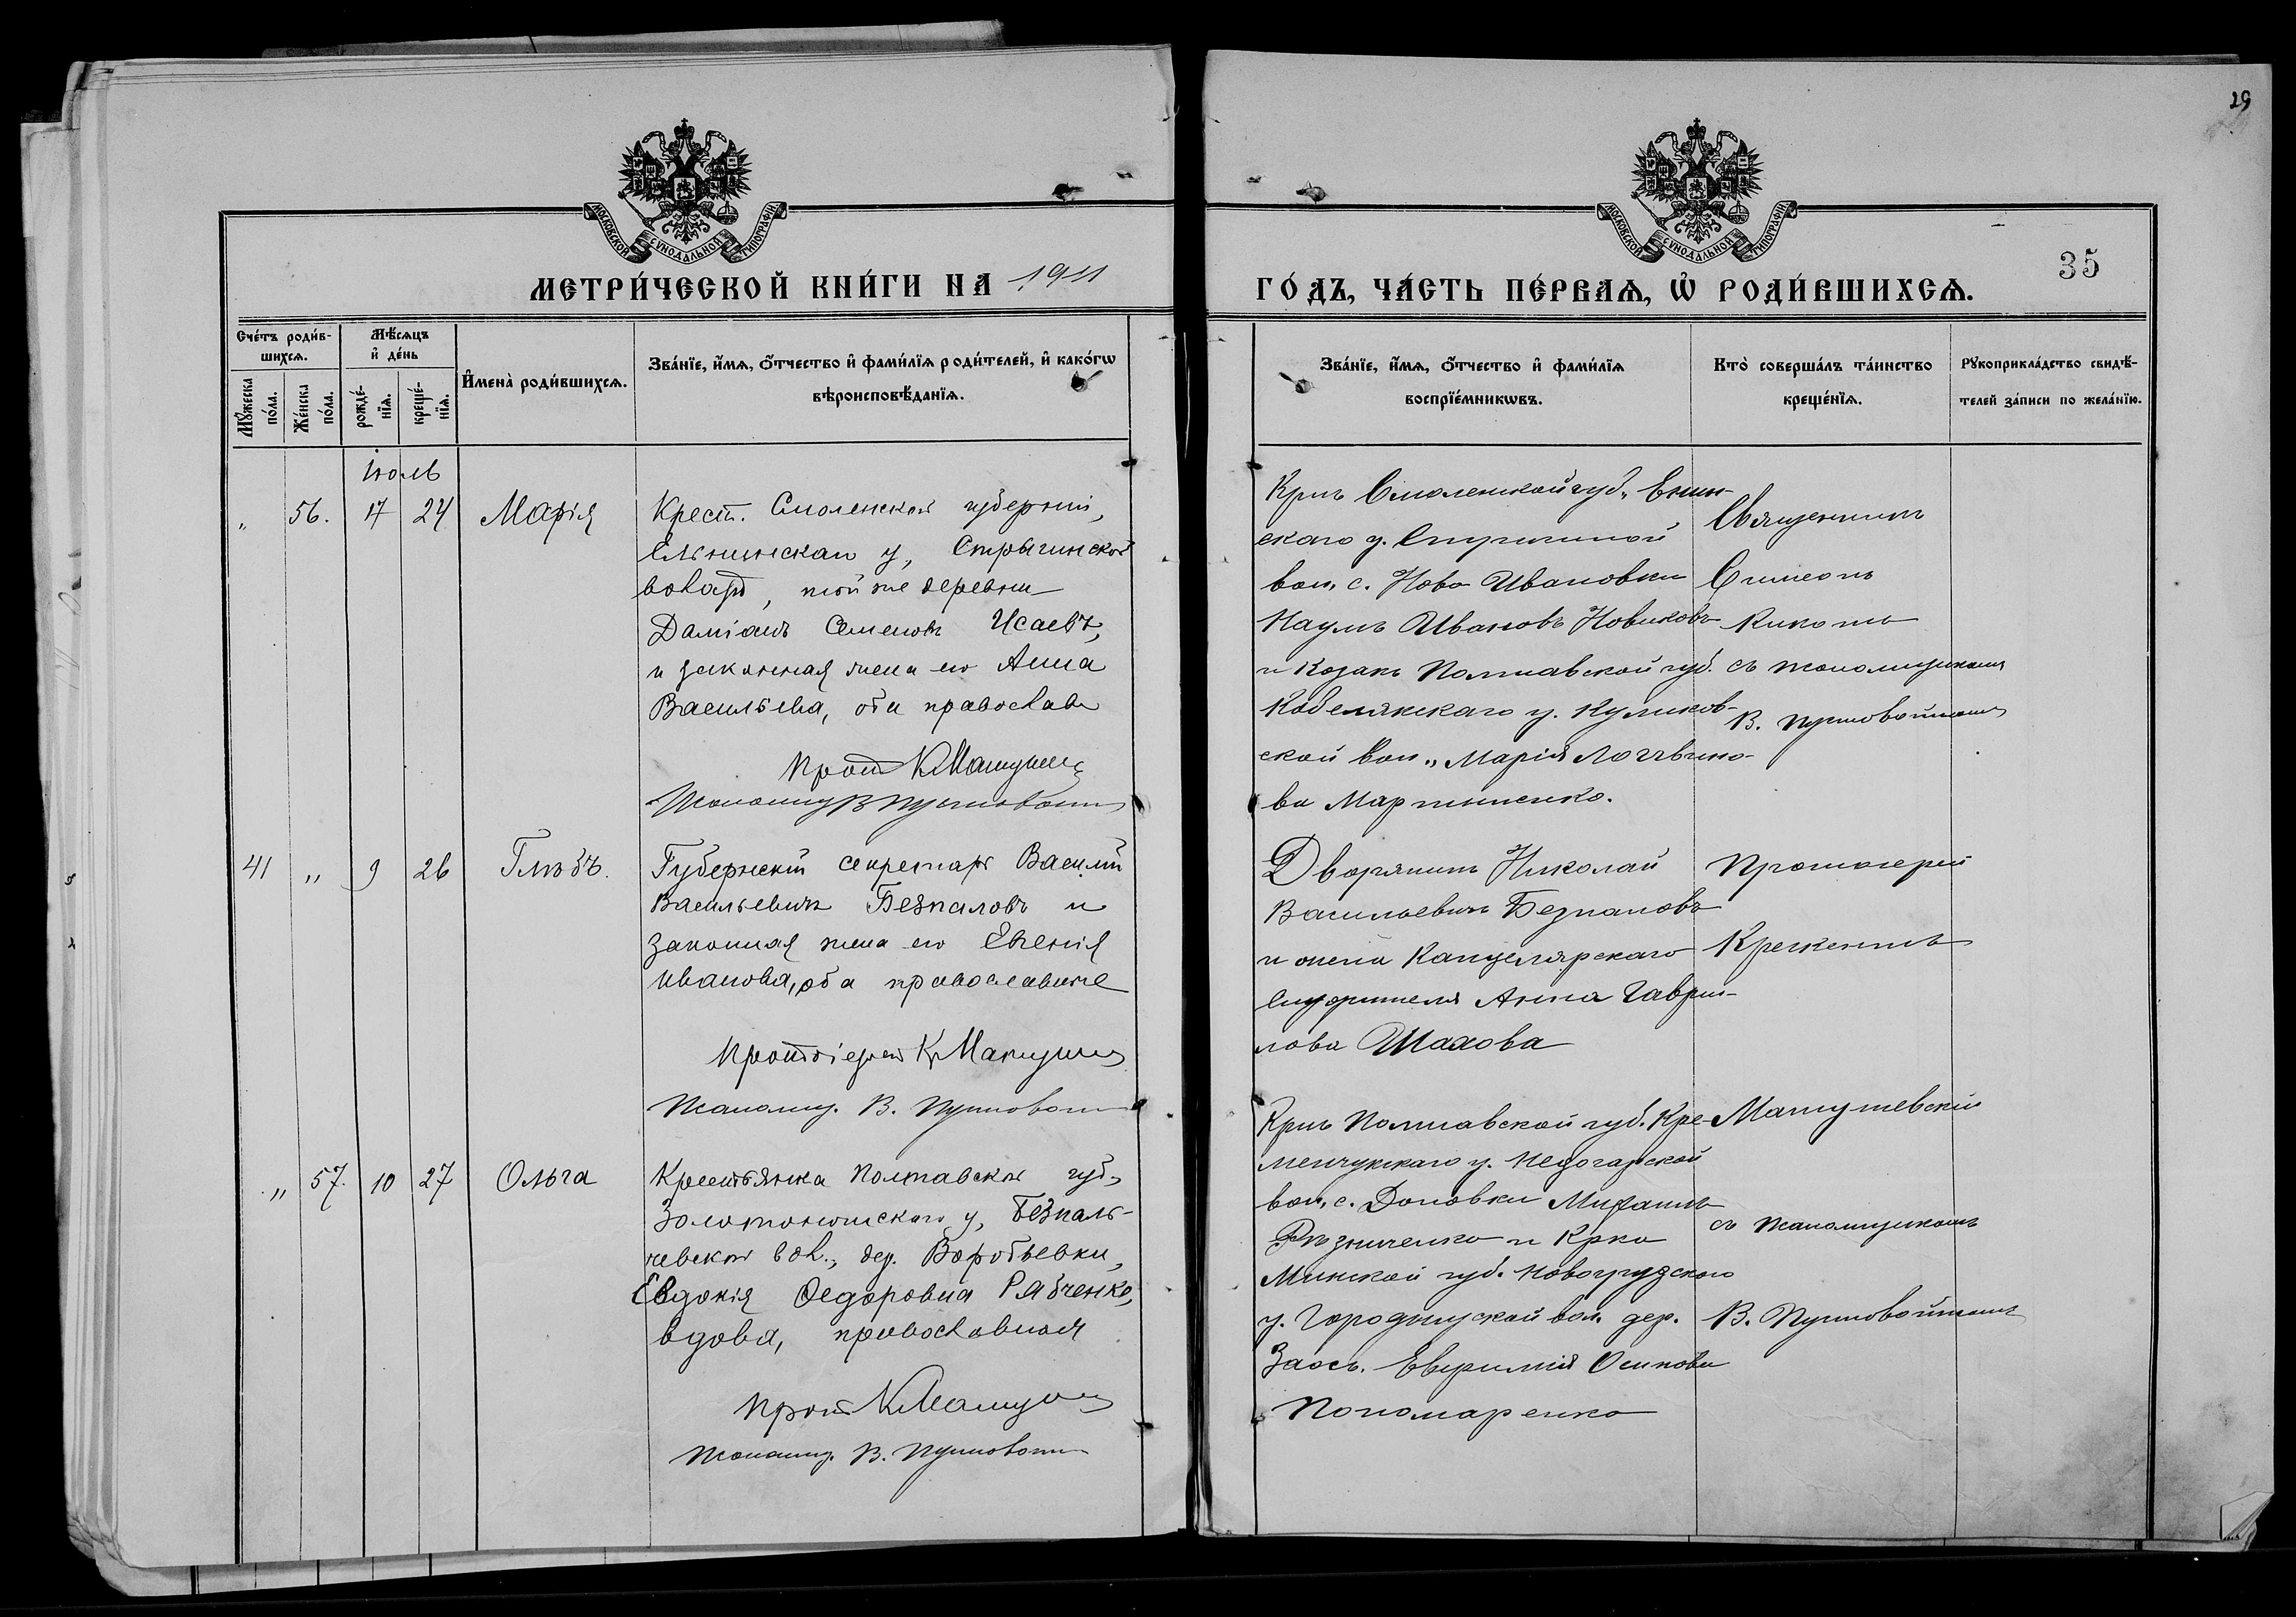 29
35
МОСКОВСКОЙ СѴНОДАЛЬНОЙ ТИПОГРАФІИ
МОСКОВСКОЙ СѴНОДАЛЬНОЙ ТИПОГРАФІИ
МЕТРИ́ЧЕСКОЙ КНИ́ГИ НА 1911
ГО́ДЪ, ЧА́СТЬ ПЕ́РВАѦ, Ѽ РОДИ́ВШИХСѦ.
Сче́тъ роди́в-
шихсѧ.
Мѣ́сѧцъ
и҆ де́нь
Мꙋ́жеска
по́ла.
Же́нска
по́ла.
рожде́-
нїѧ.
креще́-
нїѧ.
И҆мена̀ роди́вшихсѧ.
Зва́нїе, и҆́мѧ, ѻ҆́тчество и҆ фами́лїѧ роди́телей, и҆ како́гѡ
вѣроисповѣ́данїѧ.
Зва́нїе, и҆́мѧ, ѻ҆́тчество и҆ фами́лїѧ
воспрїе́мникѡвъ.
Кто̀ соверша́лъ та́инство
креще́нїѧ.
Рꙋкоприкла́дство свидѣ́-
телей за́писи по жела́нїю.
Іюль
„ 56. 17 24 Марія
Крест. Смоленской губерніи,
Ельнинскаго у, Стрыгинской
волости, той же деревни
Даміанъ Семеновъ Исаевъ,
и законная жена его Анна
Васильева, оба православ
Прот К Мату
В Пустово
Крнъ Смоленской губ. Ельнин-
скаго у. Стригиной
вол. с. Ново Ивановки
Наумъ Ивановъ Новиковъ
и Козакъ Полтавской губ.
Кобелякскаго у. Куликов-
ской вол. „ Марія Логгвино-
ва Мартыненко.
Священникъ
Симеонъ
Кикоть
съ псаломщикомъ
В. Пустовойтомъ
41 „ 9 26 Глѣбъ.
Губернскій секретарь Василій
Васильевичъ Безпаловъ и
законная жена его Евгенія
Иванова, оба православные
Протоіерей К Мату
Псаломщ. В. Пустово
Дворянинъ Николай
Васильевичъ Безпаловъ
и жена Канцелярскаго
служителя Анна Гаври-
лова Шахова
Протоіерей
Крискентъ
Матушевскій
„ 57. 10 27 Ольга
Крестьянка Полтавской губ.,
Золотоношскаго у, Безпаль-
чевской вол., дер. Воробьевки,
Евдокія Ѳедоровна Рябченко,
вдова, православная
Прот К Мату
Псаломщ. В. Пустово
Крнъ Полтавской губ. Кре-
менчугскаго у. Недогарской
вол. с. Михаилъ
Рѣзниченко и Крка
Минской губ. Новогрудскаго
у. Городищской вол. дер.
Заось. Евфимія Осипова
Пономаренко
съ псаломщикомъ
В. Пустовойтомъ